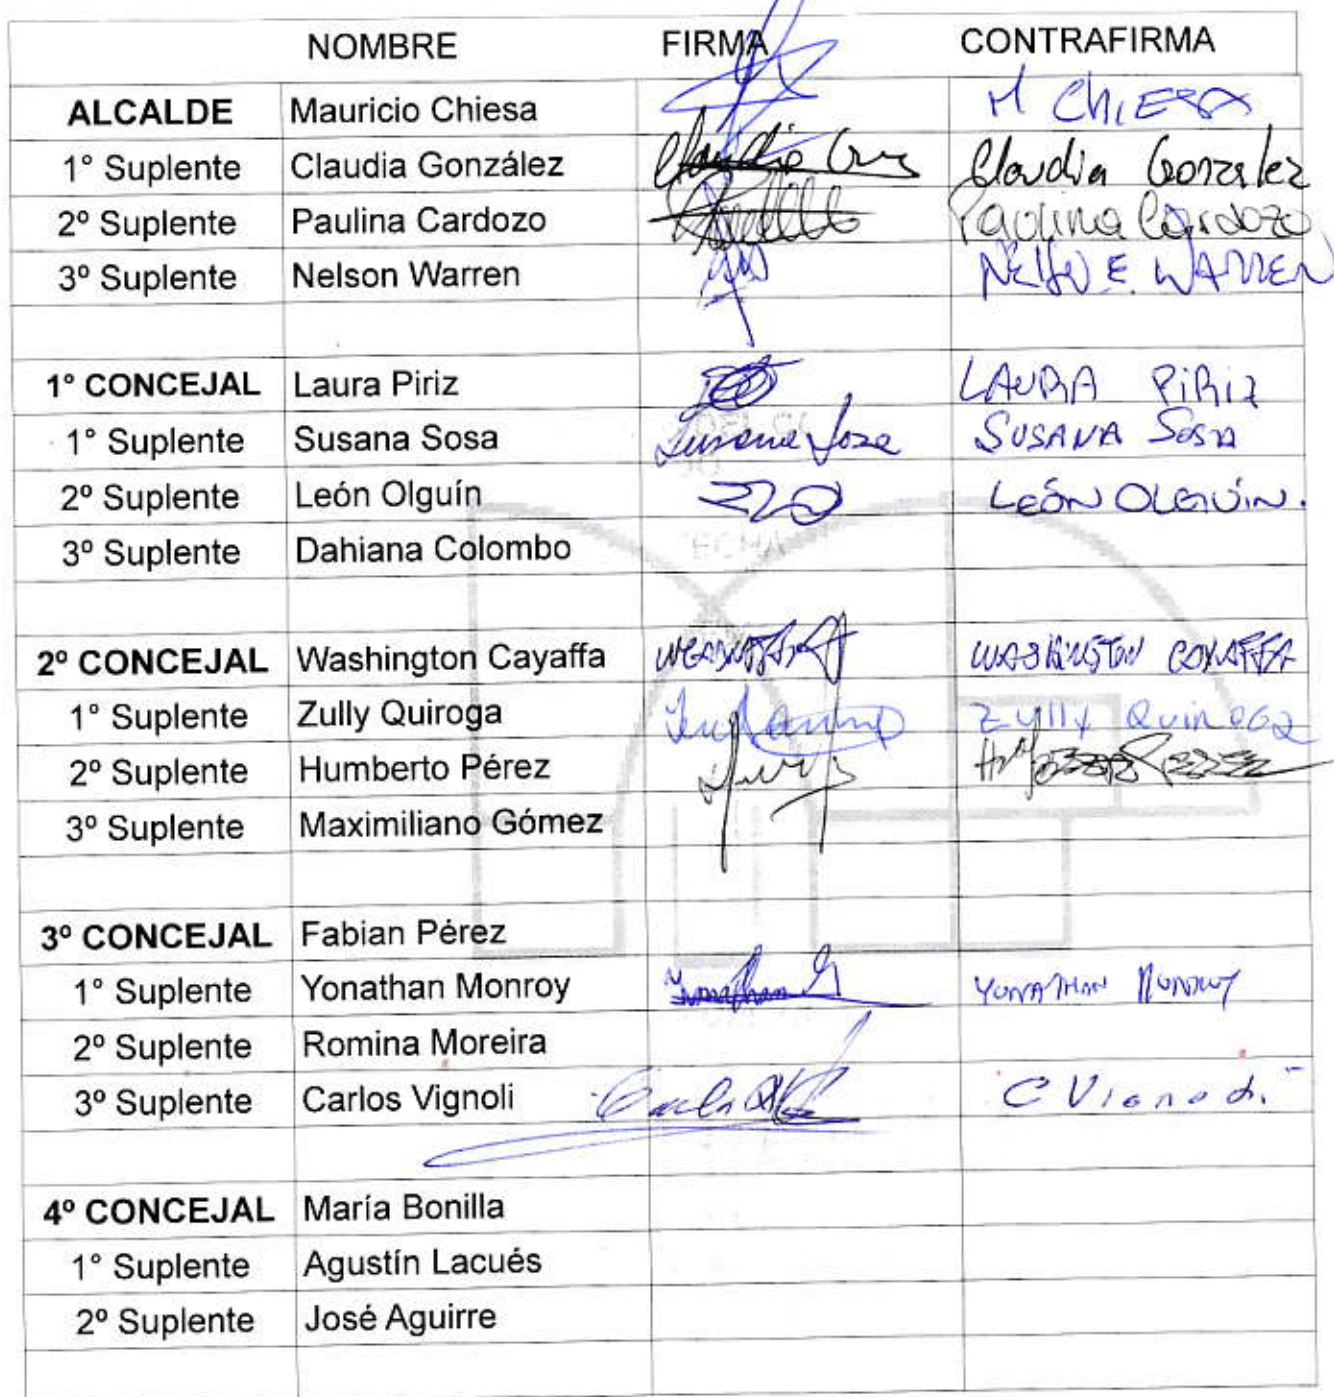 NOMBRE FIRMA CONTRAFIRMA
ALCALDE Mauricio Chiesa M CHIESA
1° Suplente Claudia González Claudia Gonzalez
2º Suplente Paulina Cardozo Paulina Cardozo
3º Suplente Nelson Warren NELSON E. WARREN
1° CONCEJAL Laura Piriz LAURA PiRiz
1° Suplente Susana Sosa Susana Sosa SUSANA SOSA
2º Suplente León Olguín LEÓN OLGUÍN.
3º Suplente Dahiana Colombo
FECHA
2º CONCEJAL Washington Cayaffa WASHINGTON CAYAFFA
1° Suplente Zully Quiroga Zully Quiroga
2º Suplente Humberto Pérez
3º Suplente Maximiliano Gómez
3º CONCEJAL Fabian Pérez
1° Suplente Yonathan Monroy Yonathan M YONATHAN MONROY
2º Suplente Romina Moreira
3º Suplente Carlos Vignoli C Vignoli
4º CONCEJAL María Bonilla
1° Suplente Agustín Lacués
2º Suplente José Aguirre